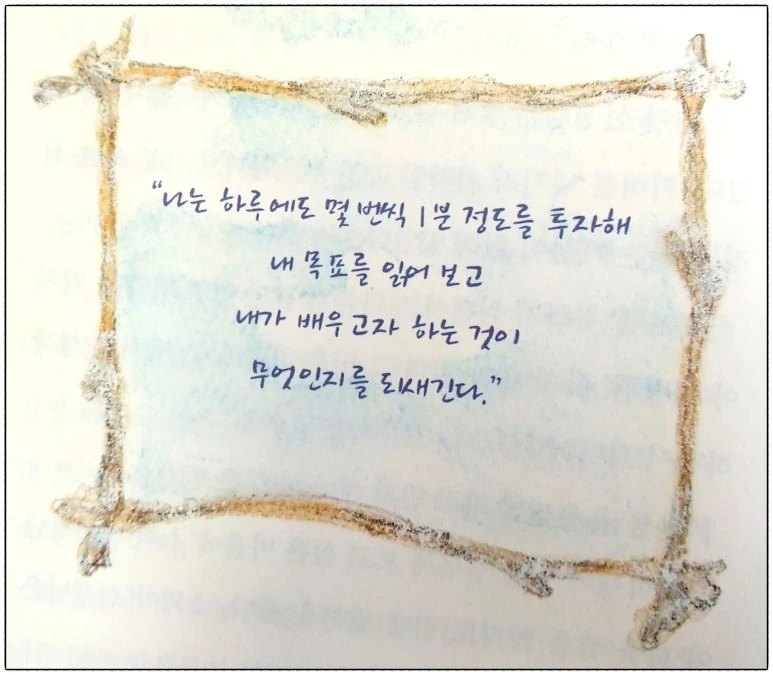 “나는 하루에도 몇 번씩 1분 정도를 투자해
내 목표를 읽어 보고
내가 배우고자 하는 것이
무엇인지를 되새긴다.”